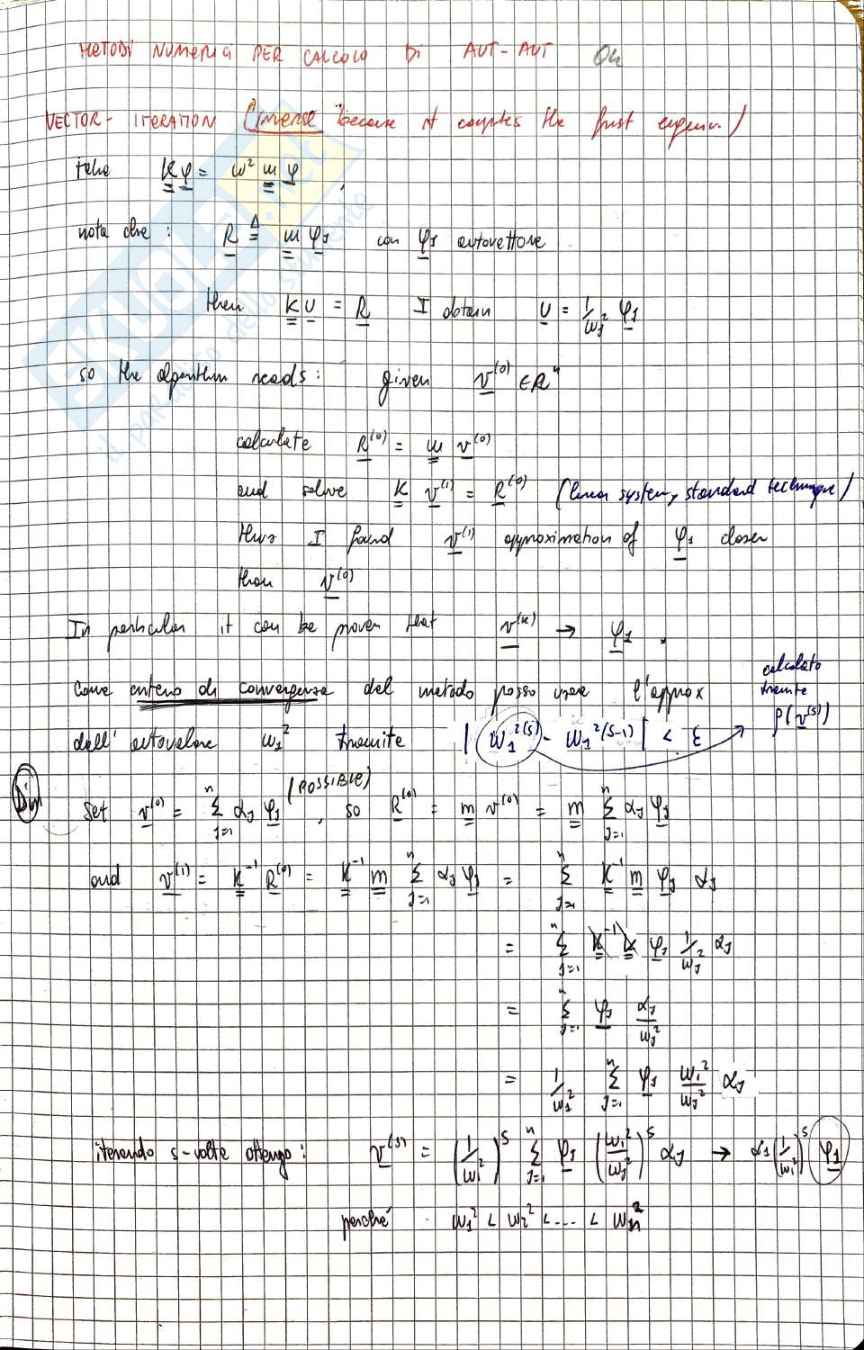 METODI NUMERICI PER CALCOLO DI AUT-AUT Ok
VECTOR-ITERATION ("inverse" because it computes the first eigenv.)
take K φ = ω² m φ ,
nota che : R ≜ m φ_J con φ_J autovettore
then K U = R I obtain U = 1/ω_J² φ_J
so the algorithm reads : given v^(0) ∈ R^n
calculate R^(0) = m v^(0)
and solve K v^(1) = R^(0) (linear system, standard technique)
thus I found v^(1) approximation of φ_1 closer
than v^(0)
In particular it can be proven that v^(k) → φ_1 .
calcolato
tramite
ρ(v^(s))
Come criterio di convergenza del metodo posso usare l'approx
dell' autovalore ω_1² tramite | ω_1^2(s) - ω_1^2(s-1) | < ε
Dim
Set v^(0) = Σ_{J=1}^n α_J φ_J (POSSIBLE) , so R^(0) = m v^(0) = m Σ_{J=1}^n α_J φ_J
and v^(1) = K^-1 R^(0) = K^-1 m Σ_{J=1}^n α_J φ_J = Σ_{J=1}^n K^-1 m φ_J α_J
= Σ_{J=1}^n K^-1 K φ_J 1/ω_J² α_J
= Σ_{J=1}^n φ_J α_J/ω_J²
= 1/ω_1² Σ_{J=1}^n φ_J ω_1²/ω_J² α_J
iterando s-volte ottengo : v^(s) = (1/ω_1²)^s Σ_{J=1}^n φ_J (ω_1²/ω_J²)^s α_J → α_1 (1/ω_1²)^s φ_1
perché ω_1² < ω_2² < .... < ω_n²
SKUOLA.net
il paradiso dello studente